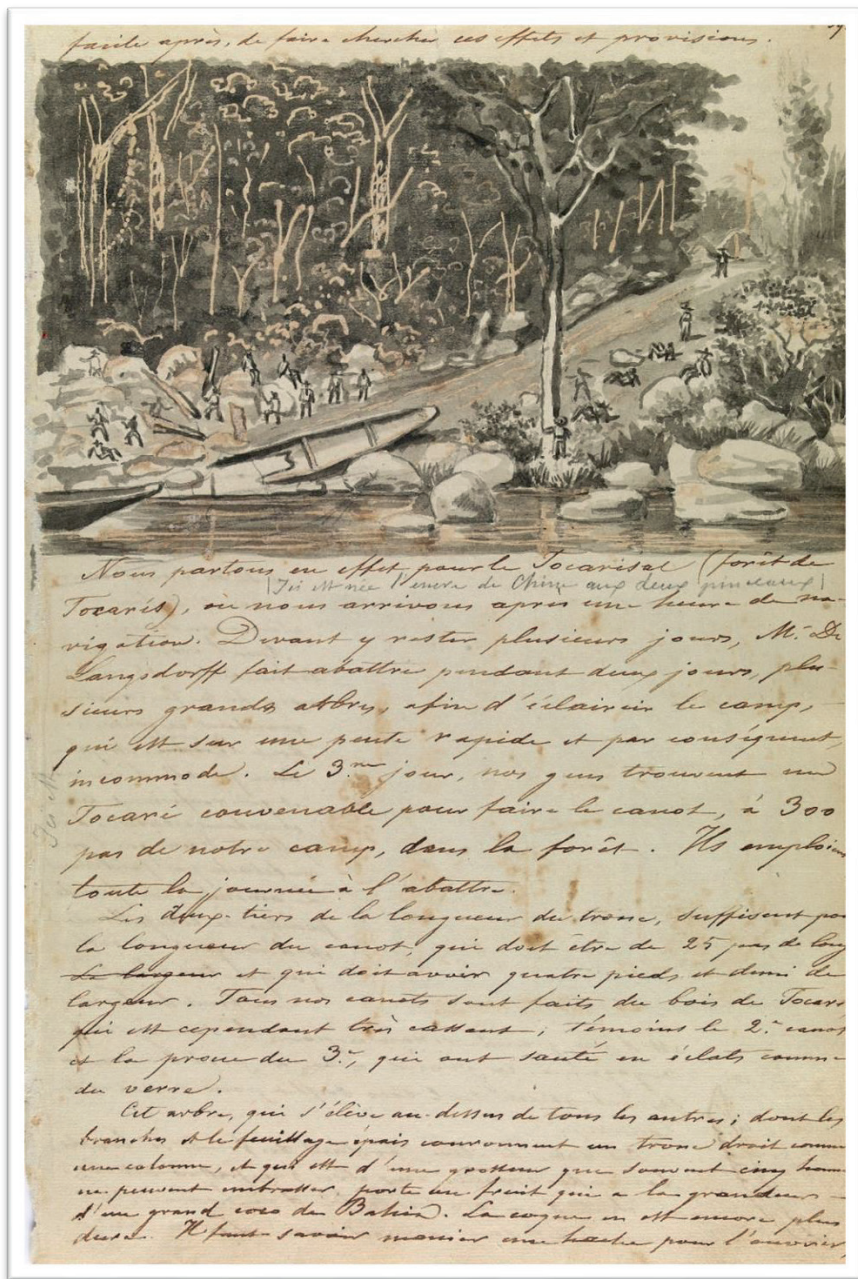 facile après, de faire chercher ces effets et provisions.
Nous partons en effet pour le Tocarisal (forêt de
(Ici est née l'encre de Chine aux deux pinceaux)
Tocarés), où nous arrivons après une heure de na-
vigation. Devant y rester plusieurs jours, Mr. De
Langsdorff fait abattre pendant deux jours, plu-
sieurs grands arbres, afin d'éclaircir le camp,
qui est sur une pente rapide et par conséquent,
incommode. Le 3.me jour, nos gens trouvent un
Tocaré convenable pour faire le canot, à 300
pas de notre camp, dans la forêt. Ils emploient
toute la journée à l'abattre.
Les deux-tiers de la longueur du tronc, suffisent pour
la longueur du canot, qui doit être de 25 pas de long
la largeur et qui doit avoir quatre pieds et demi de
largeur. Tous nos canots sont faits du bois de Tocaré
qui est cependant très cassant; témoins le 2.e canot
et la proue du 3.e, qui ont sauté en éclats comme
du verre.
Cet arbre, qui s'élève au-dessus de tous les autres; dont les
branches et le feuillage épais couronnent un tronc droit comme
une colonne, et qui est d'une grosseur que souvent cinq hommes
ne peuvent embrasser, porte un fruit qui a la grandeur
d'un grand coco de Bahia. La coque en est encore plus
dure. Il faut savoir manier une hache pour l'ouvrir,